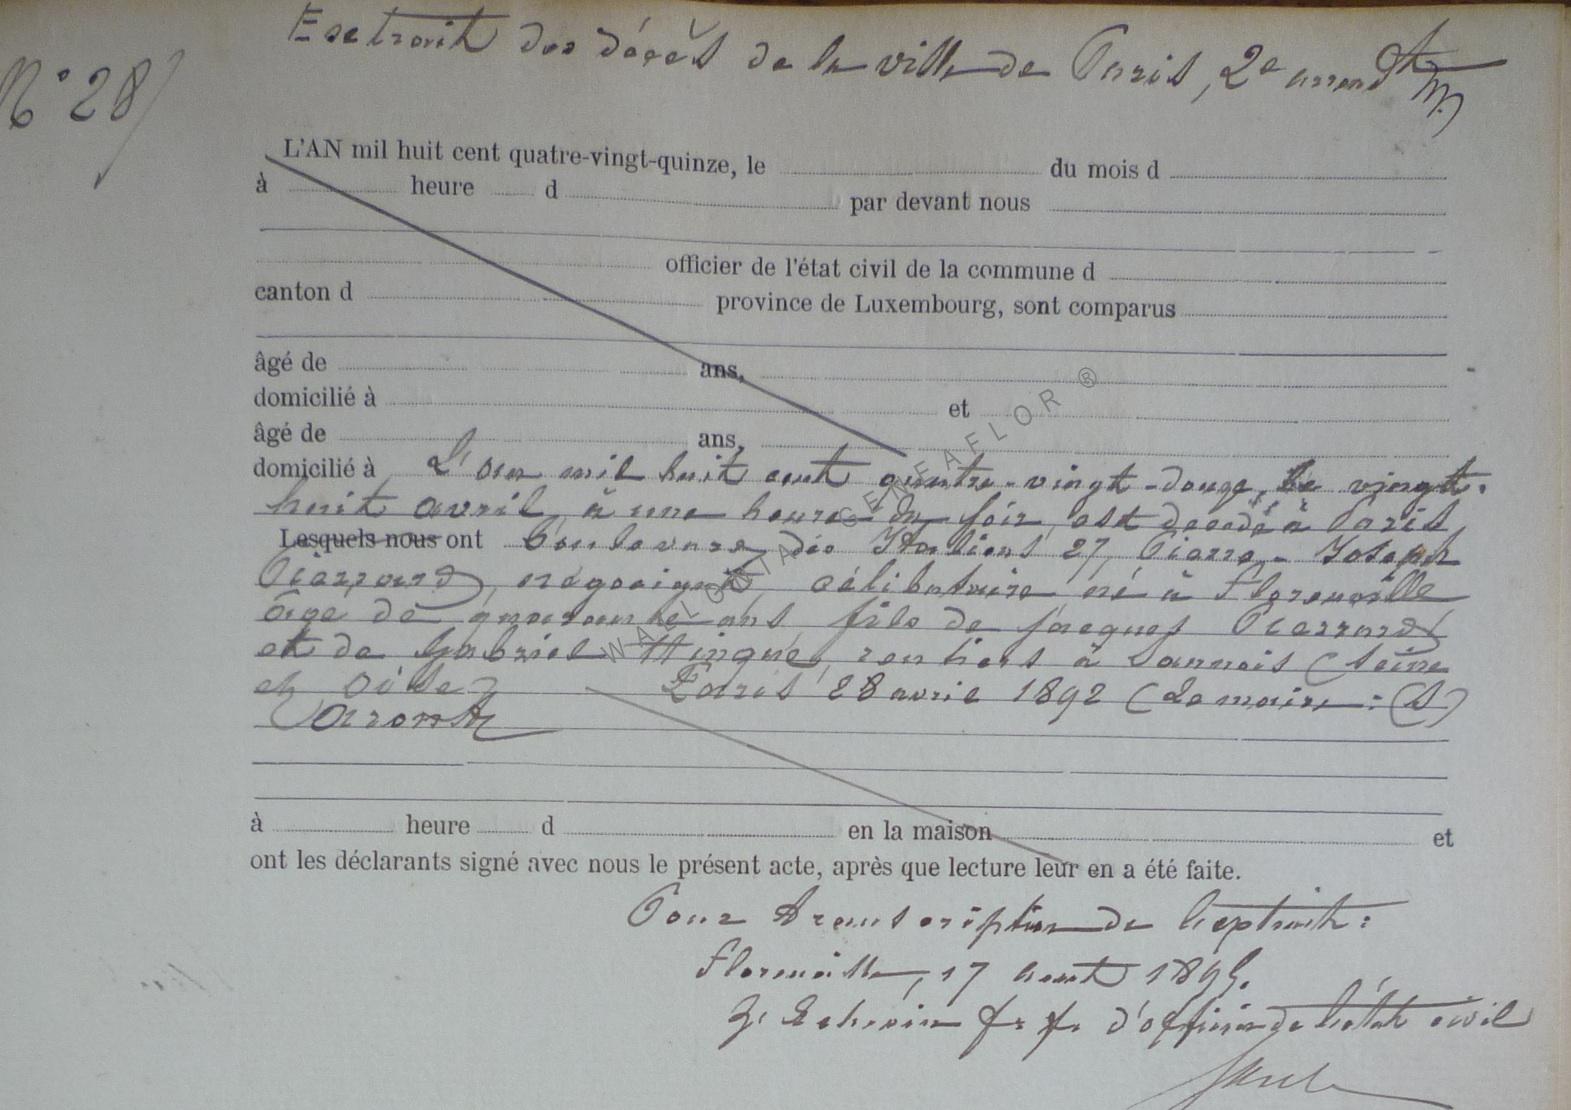 Extrait des décès de la ville de Paris, 2e arrondt
N° 28
L'AN mil huit cent quatre-vingt-quinze, le du mois d
à heure d par devant nous
officier de l'état civil de la commune d
canton d province de Luxembourg, sont comparus
âgé de ans,
domicilié à et
âgé de ans,
domicilié à L'an mil huit cent quatre-vingt-douze, le vingt-
huit avril, à une heure du soir, est decédé à Paris,
Lesquels nous ont boulevard des Italiens 27, Pierre-Joseph
Pierrard, négociant, célibataire né à Florenville
âge de quarante ans fils de Jacques Pierrard
et de Gabriel Hinque, rentiers à Sannois (Seine
et Oise) Paris 28 avril 1892 (Le maire: (S)
à heure d en la maison et
ont les déclarants signé avec nous le présent acte, après que lecture leur en a été faite.
Pour transcription de l'extrait:
Florenville, 17 aout 1895.
L'Echevin f. f. d'officier de l'état civil
WALLONIA GENEAFLOR ®